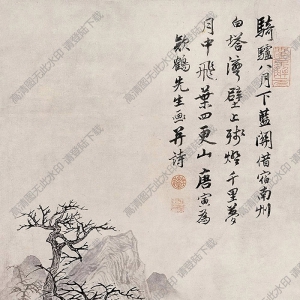 騎驢八月下藍關借宿南州
白塔灣壁上殘燈千里夢
月中飛葉四更山唐寅為
欵鶴先生画并詩